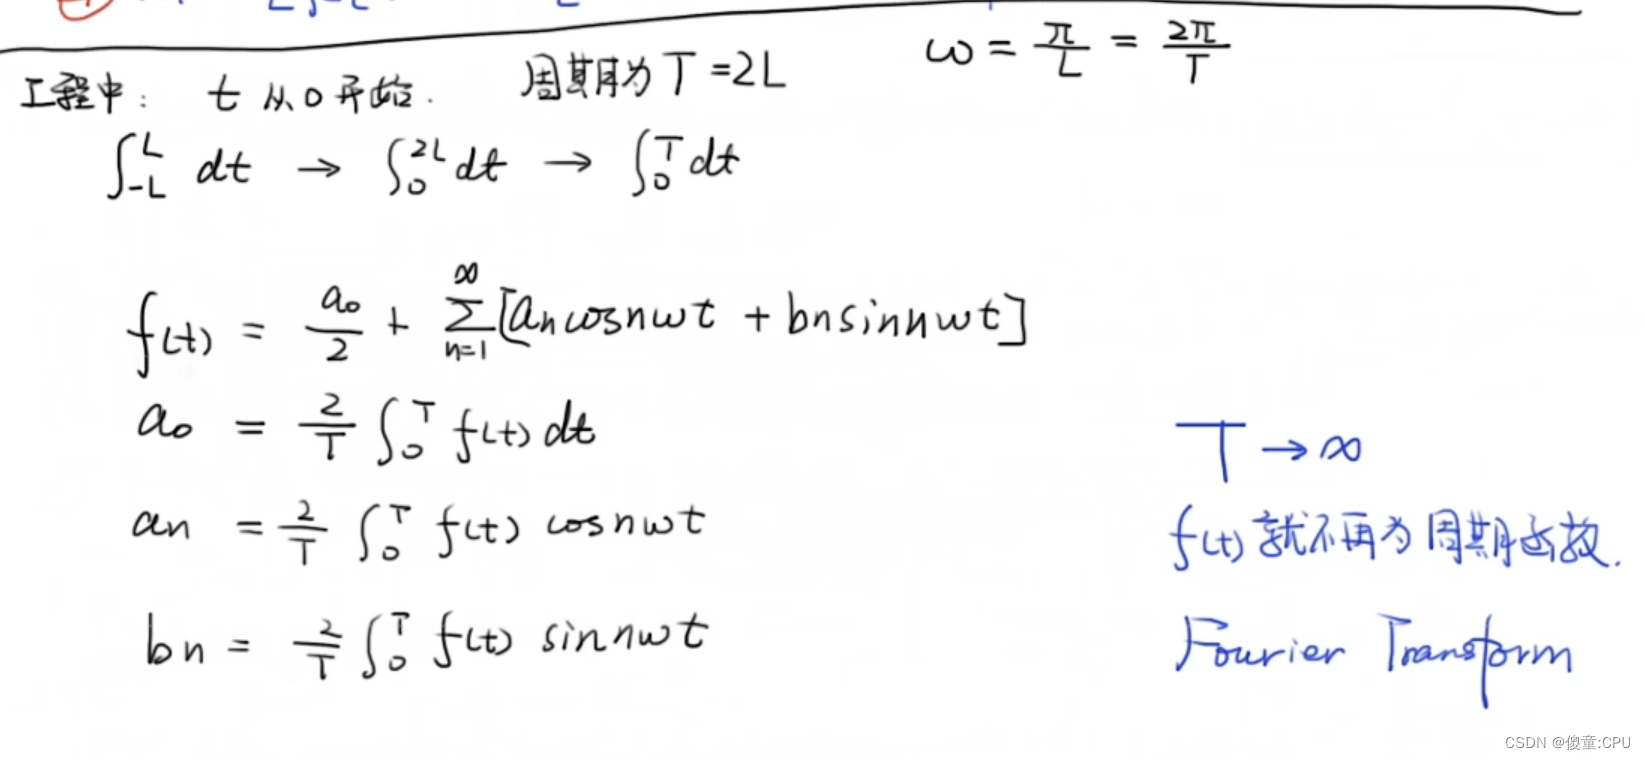 工程中: t 从0开始. 周期为 T=2L ω = π/L = 2π/T
∫_{-L}^{L} dt → ∫_0^{2L} dt → ∫_0^T dt
f(t) = a₀/2 + ∑_{n=1}^{∞} [an cosnωt + bn sinnωt]
a₀ = 2/T ∫_0^T f(t) dt
an = 2/T ∫_0^T f(t) cosnωt
bn = 2/T ∫_0^T f(t) sinnωt
T → ∞
f(t) 就不再为周期函数.
Fourier Transform
CSDN @傻童:CPU